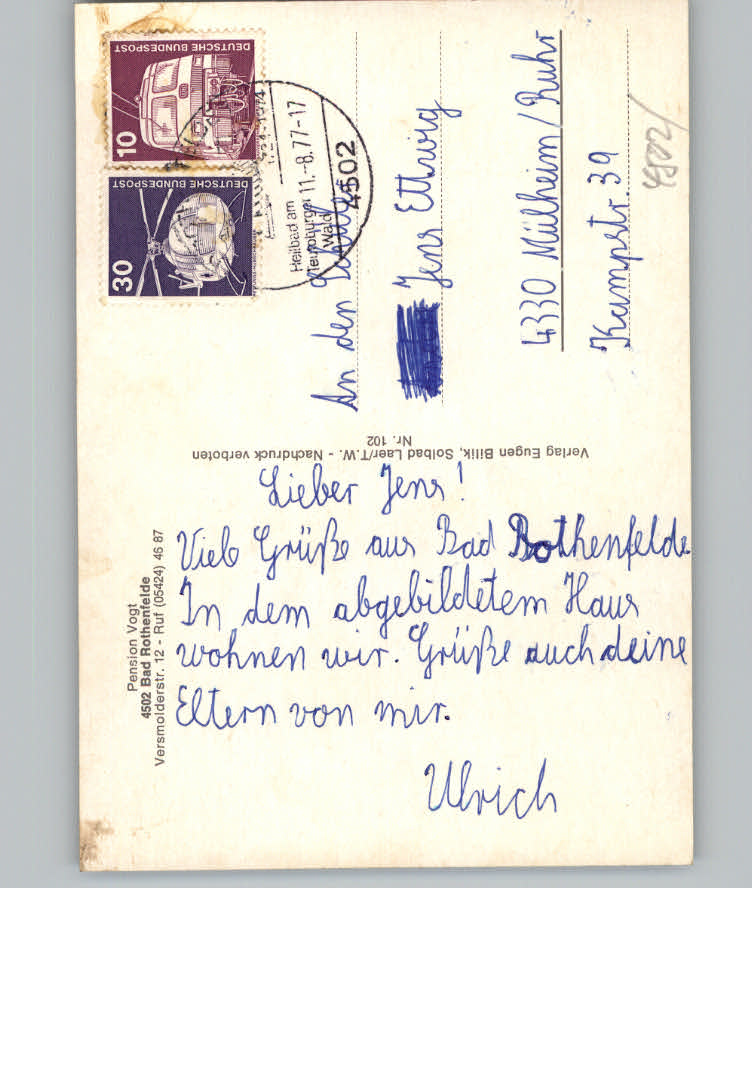 Pension Vogt
4502 Bad Rothenfelde
Versmolderstr. 12 - Ruf (05424) 46 87
Lieber Jens!
Viele Grüße aus Bad Rothenfelde
In dem abgebildetem Haus
wohnen wir. Grüße auch deine
Eltern von mir.
Ulrich
Verlag Eugen Bilik, Solbad Laer/T.W. - Nachdruck verboten
Nr. 102
DEUTSCHE BUNDESPOST
10
DEUTSCHE BUNDESPOST
30
Heilbad am
Teutoburger
Wald
11.-8.77-17
4502
An den Schüler
Jens Ettwig
4330 Mülheim/Ruhr
Kampstr. 39
4502/